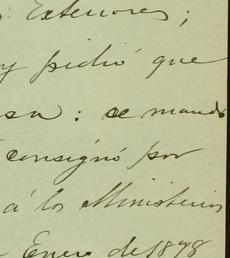 Exteriores;
y pidió que
: se mandó
consignó por
á los Ministerios
Enero de 1898